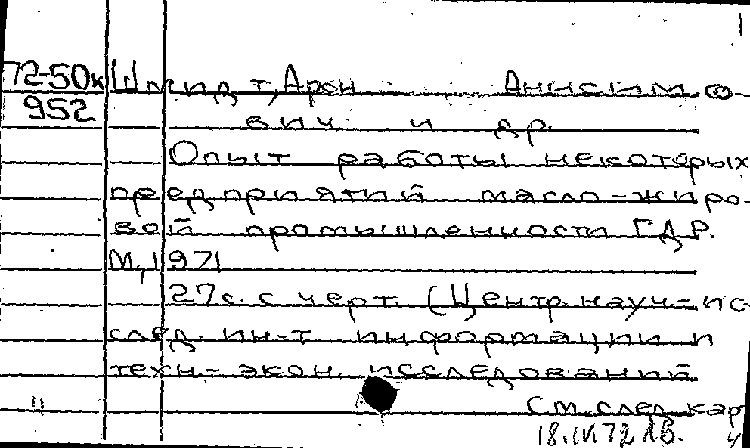 72-50к Шмидт, Арон Анисимо
952 вич и др.
Опыт работы некоторых
предприятий масло-жиро-
вой промышленности ГДР.
М., 1971
27с. с черт. (Центр. науч-ис
след. ин-т информации и
техн-экон. исследований
См. след. кар
18.IV 72